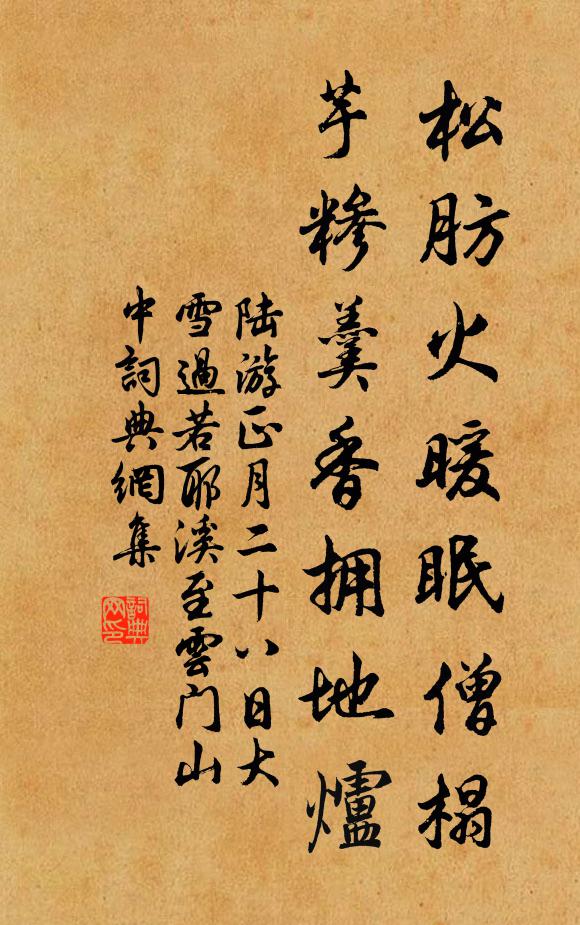 松肪火暖眠僧榻
芋糝羹香拥地爐
陆游正月二十八日大
雪過若耶溪至雲门山
中詞典網集
詞典
网印